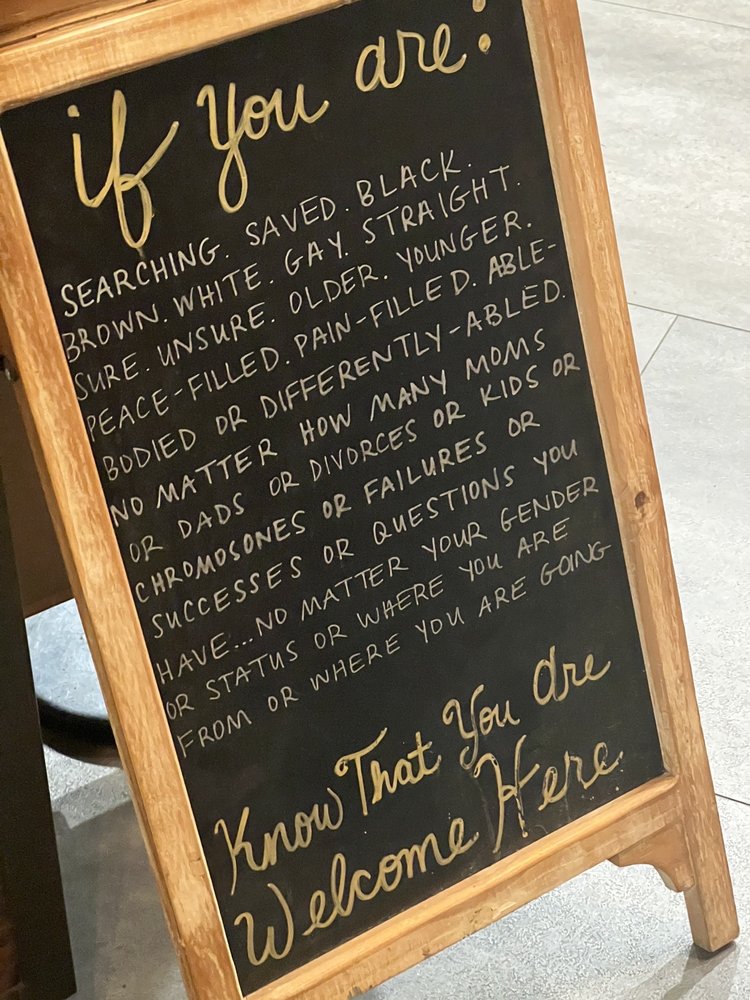 if you are:
SEARCHING. SAVED. BLACK.
BROWN. WHITE. GAY. STRAIGHT.
SURE. UNSURE. OLDER. YOUNGER.
PEACE-FILLED. PAIN-FILLED. ABLE-
BODIED OR DIFFERENTLY-ABLED.
NO MATTER HOW MANY MOMS
OR DADS OR DIVORCES OR KIDS OR
CHROMOSONES OR FAILURES OR
SUCCESSES OR QUESTIONS YOU
HAVE...NO MATTER YOUR GENDER
OR STATUS OR WHERE YOU ARE
FROM OR WHERE YOU ARE GOING
Know That You are
Welcome Here.